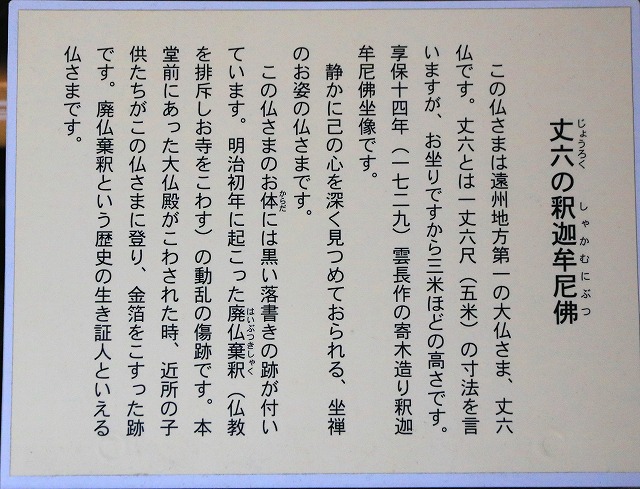 丈六の釈迦牟尼佛
じょうろく しゃかむにぶつ
この仏さまは遠州地方第一の大仏さま、丈六
仏です。丈六とは一丈六尺（五米）の寸法を言
いますが、お坐りですから三米ほどの高さです。
享保十四年（一七二九）雲長作の寄木造り釈迦
牟尼佛坐像です。
静かに己の心を深く見つめておられる、坐禅
のお姿の仏さまです。
この仏さまのお体には黒い落書きの跡が付い
からだ
ています。明治初年に起こった廃仏棄釈（仏教
はいぶつきしゃく
を排斥しお寺をこわす）の動乱の傷跡です。本
堂前にあった大仏殿がこわされた時、近所の子
供たちがこの仏さまに登り、金箔をこすった跡
です。廃仏棄釈という歴史の生き証人といえる
仏さまです。